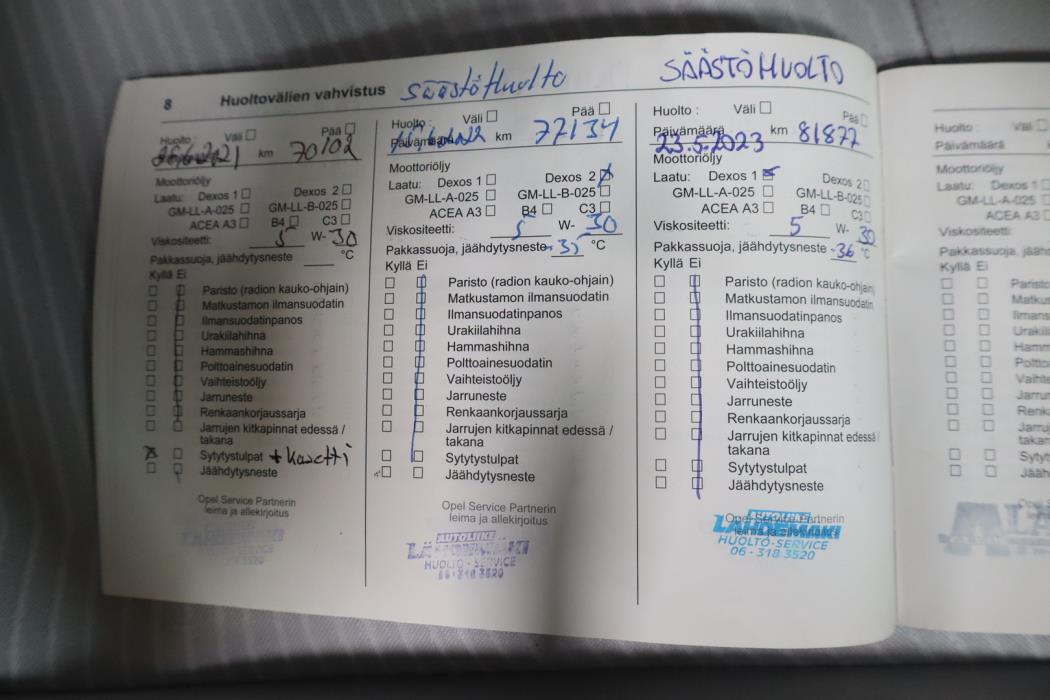 8 Huoltovälien vahvistus SäästöHuolto SÄÄSTÖHUOLTO
Huolto : Väli Pää
km 70102
Moottoriöljy
Laatu: Dexos 1 Dexos 2
GM-LL-A-025 GM-LL-B-025
ACEA A3 B4 C3
Viskositeetti: 5 W- 30
Pakkassuoja, jäähdytysneste °C
Kyllä Ei
Paristo (radion kauko-ohjain)
Matkustamon ilmansuodatin
Ilmansuodatinpanos
Urakiilahihna
Hammashihna
Polttoainesuodatin
Vaihteistoöljy
Jarruneste
Renkaankorjaussarja
Jarrujen kitkapinnat edessä /
takana
Sytytystulpat + kasetti
Jäähdytysneste
Opel Service Partnerin
leima ja allekirjoitus
Huolto : Väli Pää
Päivämäärä km 77134
Moottoriöljy
Laatu: Dexos 1 Dexos 2
GM-LL-A-025 GM-LL-B-025
ACEA A3 B4 C3
Viskositeetti: 5 W- 30
Pakkassuoja, jäähdytysneste °C
Kyllä Ei
Paristo (radion kauko-ohjain)
Matkustamon ilmansuodatin
Ilmansuodatinpanos
Urakiilahihna
Hammashihna
Polttoainesuodatin
Vaihteistoöljy
Jarruneste
Renkaankorjaussarja
Jarrujen kitkapinnat edessä /
takana
Sytytystulpat
Jäähdytysneste
Opel Service Partnerin
leima ja allekirjoitus
AUTOLIIKE
LÄHDEMÄKI
HUOLTO - SERVICE
06 - 318 3520
Huolto : Väli Pää
Päivämäärä 23.5.2023 km 81877
Moottoriöljy
Laatu: Dexos 1 Dexos 2
GM-LL-A-025 GM-LL-B-025
ACEA A3 B4 C3
Viskositeetti: 5 W- 30
Pakkassuoja, jäähdytysneste -36 °C
Kyllä Ei
Paristo (radion kauko-ohjain)
Matkustamon ilmansuodatin
Ilmansuodatinpanos
Urakiilahihna
Hammashihna
Polttoainesuodatin
Vaihteistoöljy
Jarruneste
Renkaankorjaussarja
Jarrujen kitkapinnat edessä /
takana
Sytytystulpat
Jäähdytysneste
Opel Service Partnerin
leima ja allekirjoitus
AUTOLIIKE
LÄHDEMÄKI
HUOLTO - SERVICE
06 - 318 3520
Huolto : Väli
Päivämäärä
Moottoriöljy
Laatu: Dexos 1
GM-LL-A-025
ACEA A3
Viskositeetti:
Kyllä Ei